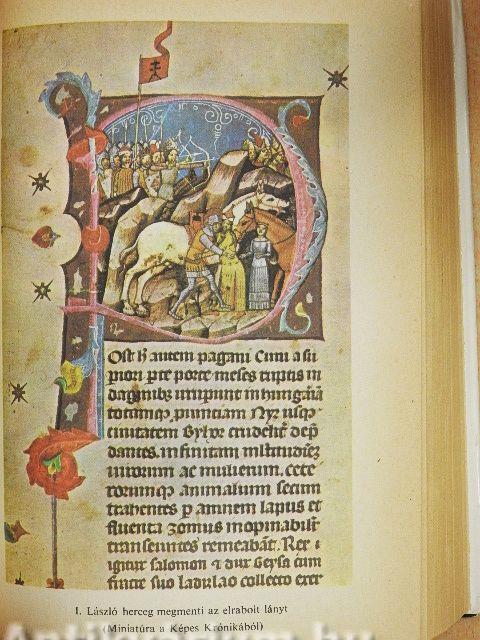 Ost h autem pagani Cuni a su
piori pte porte meses ruptis in
daginibz irruperunt in hungariā
totamqz prunciam Nyr usqz
ciuitatem Byhor crudelit dep
dantes. infinitam multitudiez
uirorum ac mulierum. cete
rorumqz animalium secum
trahentes p amnem lapus et
fluenta zomus inopinabilit
transeuntes remeabāt. Rex
igitur salomon et dux Geysa cum
fratre suo ladislao collecto exer
1. László herceg megmenti az elrabolt lányt
(Miniatúra a Képes Krónikából)